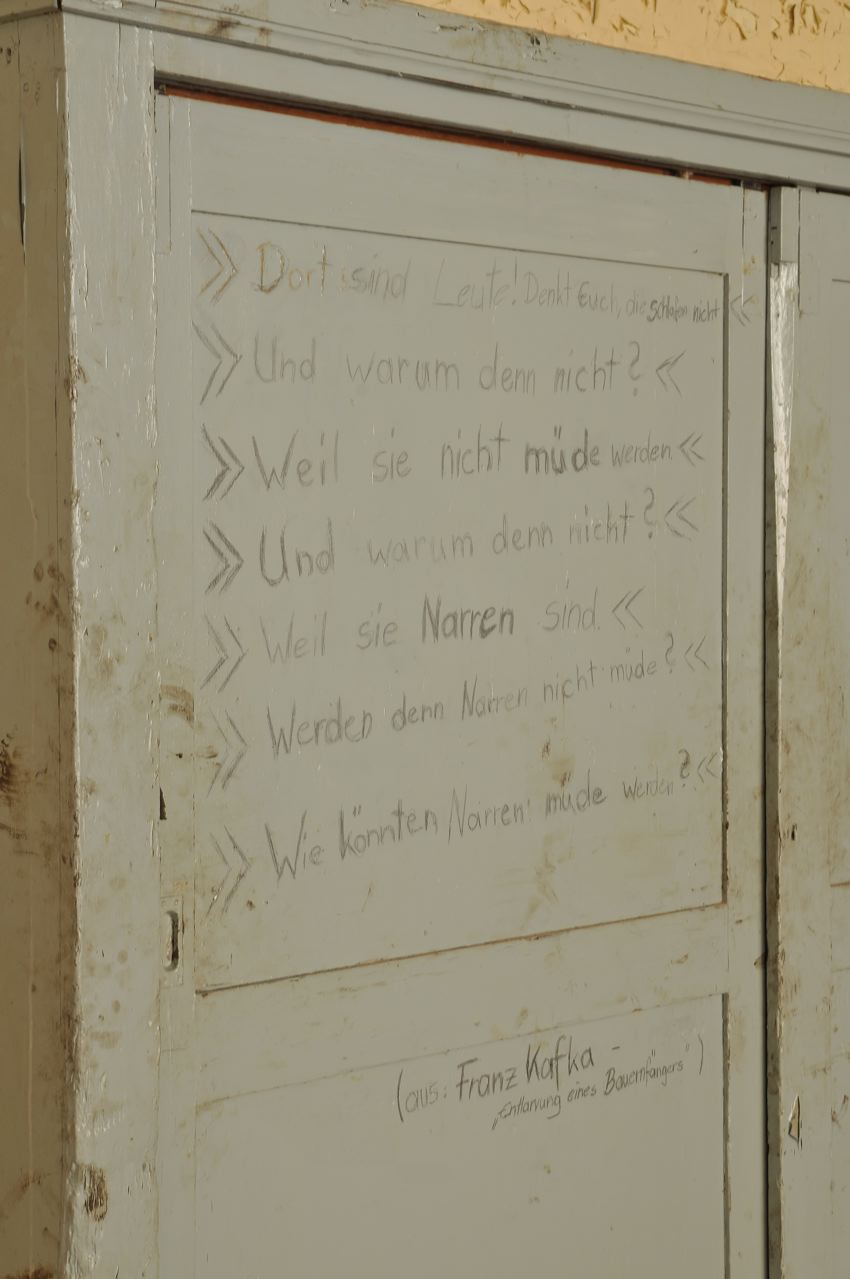 » Dort sind Leute! Denkt Euch, die schlafen nicht «
» Und warum denn nicht? «
» Weil sie nicht müde werden. «
» Und warum denn nicht? «
» Weil sie Narren sind. «
» Werden denn Narren nicht müde? «
» Wie könnten Narren müde werden? «
(aus: Franz Kafka -
„Entlarvung eines Bauernfängers")